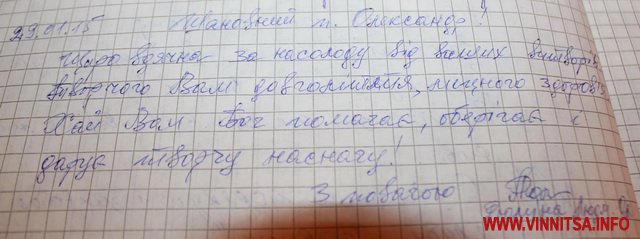 29.01.15 Шановний п. Олександр!
Щиро вдячна за насолоду від ваших витворів,
творчого Вам довголіття, міцного здоров'я
Хай Вам Бог помагає, оберігає і
дарує творчу наснагу!
З повагою
WWW.VINNITSA.INFO